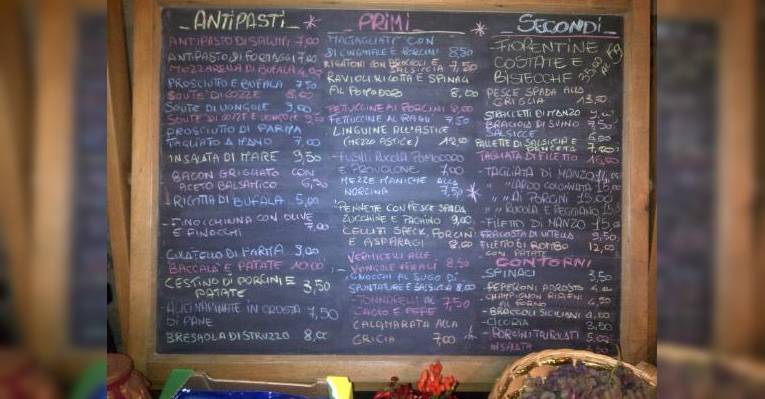 ANTIPASTI
ANTIPASTO DI SALUMI 7,00
ANTIPASTO DI FORMAGGI 7,00
MOZZARELLA DI BUFALA
PROSCIUTTO E BUFALA 7,50
SOUTE' DI COZZE 8,00
SOUTE DI VONGOLE 9,00
SOUTE DI COZZE E VONGOLE
PROSCIUTTO DI PARMA
TAGLIATO A MANO 7,00
INSALATA DI MARE 9,50
BACON GRIGLIATO CON
ACETO BALSAMICO 6,50
RICOTTA DI BUFALA 5,00
- FINOCCHIONA CON OLIVE
E FINOCCHI 7,00
CULATELLO DI PARMA 9,00
BACCALA' E PATATE 10,00
CESTINO DI PORCINI E
PATATE 3,50
ALICI MARINATE IN CROSTA
DI PANE 7,50
BRESAOLA DI STRUZZO 8,00
PRIMI
MALTAGLIATI CON
DI CINGHIALE E PORCINI 8,50
RIGATONI CON BROCCOLI E
SALSICCIA 7,50
RAVIOLI RICOTTA E SPINACI
AL POMODORO 8,00
FETTUCCINE AI PORCINI 8,00
FETTUCCINE AL RAGU' 7,50
LINGUINE ALL'ASTICE
(MEZZO ASTICE)
- FUSILLI RUCOLA POMODORO
E PROVOLONE 7,00
MEZZE MANICHE ALLA
NORCINA 7,50
PENNETTE CON PESCE SPADA
ZUCCHINE E PACHINO 9,00
CELLUTI SPECK, PORCINI
E ASPARAGI 8,00
VERMICELLI ALLE
VONGOLE VERACI 8,50
- GNOCCHI AL SUGO DI
SPUNTATURE E SALSICCIA 8,00
- TONNARELLI AL
CACIO E PEPE 7,50
CALAMARATA ALLA
GRICIA 7,00
SECONDI
FIORENTINE
COSTATE E
BISTECCHE
PESCE SPADA ALLA
GRIGLIA 13,50
STRACCETTI DI MANZO
BRACIOLA DI SUINO 7,50
SALSICCE 6,00
PALLETTE DI SALSICCIA E
PANCETTA 7,00
TAGLIATA DI FILETTO
- TAGLIATA DI MANZO 14,00
- " " LARDO COLONNATA 15,00
- " " AI PORCINI 15,00
- " " RUCOLA E REGGIANO 15,50
- FILETTO DI MANZO 15,00
FRACOSTA DI VITELLA 9,50
FILETTO DI ROMBO 12,00
CON PATATE
CONTORNI
SPINACI 3,50
- PEPERONI ARROSTO
CHAMPIGNON RIPIENI
AL FORNO 4,50
- BROCCOLI SICILIANI 4,00
- CICORIA 3,50
- PORCINI TRIFOLATI 5,00
INSALATA